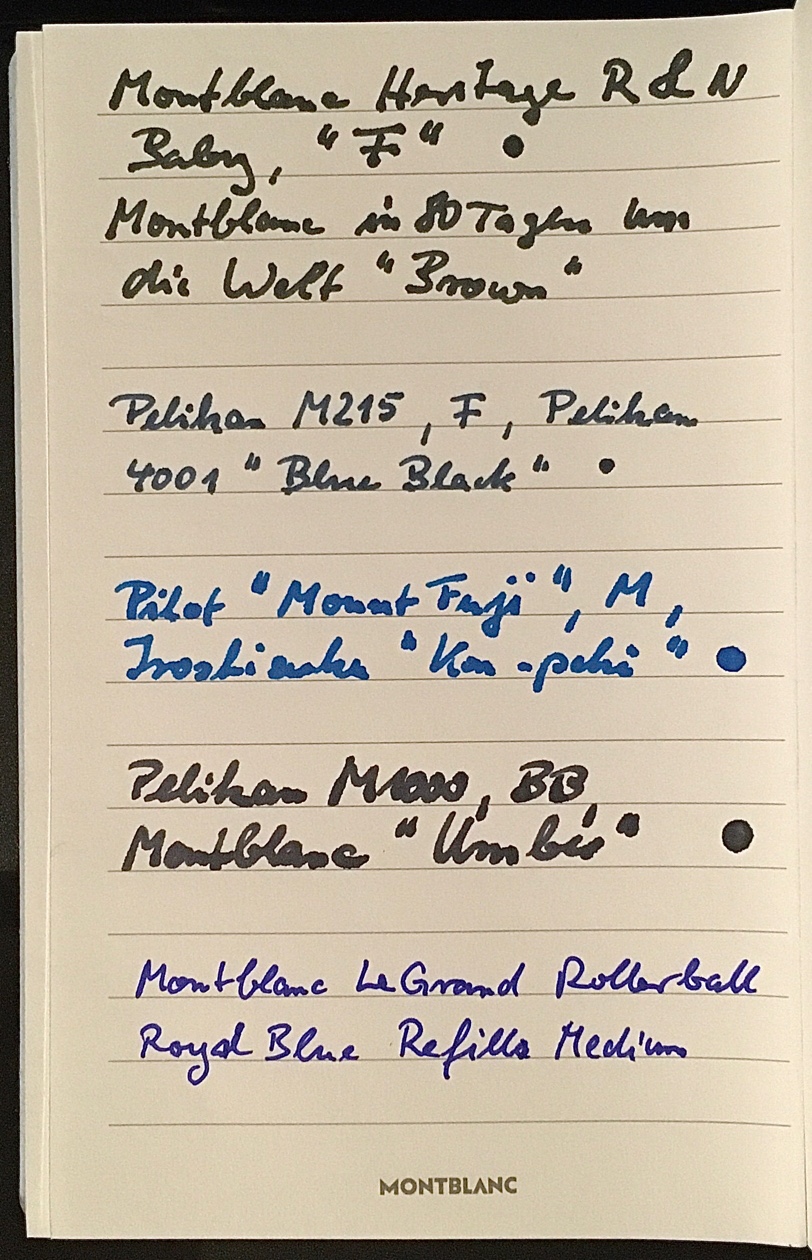 Montblanc Heritage R & N
Baby, "F"
Montblanc in 80 Tagen um
die Welt "Brown"
Pelikan M215, F, Pelikan
4001 "Blue Black"
Pilot "Mount Fuji", M,
Iroshizuku "Kon-peki"
Pelikan M1000, BB,
Montblanc "
Montblanc LeGrand Rollerball
Royal Blue Refills Medium
MONTBLANC